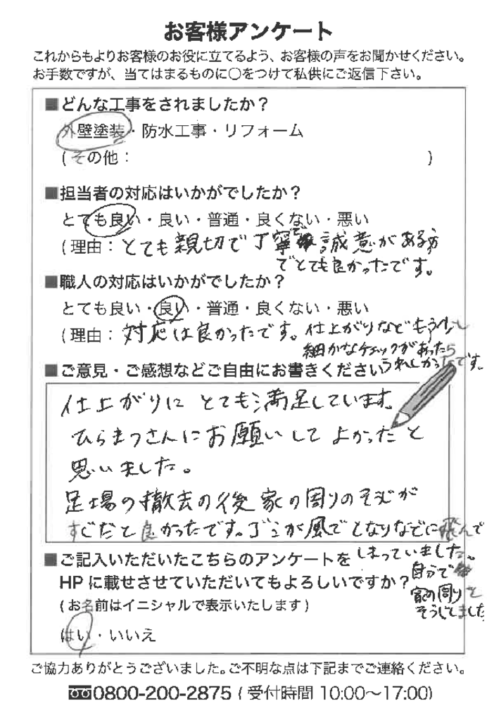 お客様アンケート
これからもよりお客様のお役に立てるよう、お客様の声をお聞かせください。
お手数ですが、当てはまるものに○をつけて私供にご返信下さい。
■どんな工事をされましたか？
外壁塗装・防水工事・リフォーム
（その他：　　　　　）
■担当者の対応はいかがでしたか？
とても良い・良い・普通・良くない・悪い
（理由：とても親切で丁寧で誠意がある方
でとても良かったです。
■職人の対応はいかがでしたか？
とても良い・良い・普通・良くない・悪い
（理由：対応は良かったです。仕上がりなどもう少し
細かなチェックがあったら
うれしかったです。
■ご意見・ご感想などご自由にお書きください
仕上がりに とても満足しています。
ひらまつさんにお願いして よかったと
思いました。
足場の撤去の後 家の周りのそうじが
すぐだと良かったです。ゴミが風でとなりなどに飛んで
しまっていました。
自分で
家の周りを
そうじしました
■ご記入いただいたこちらのアンケートを
HPに載せさせていただいてもよろしいですか？
（お名前はイニシャルで表示いたします）
はい・いいえ
ご協力ありがとうございました。ご不明な点は下記までご連絡ください。
0800-200-2875（受付時間 10:00～17:00）